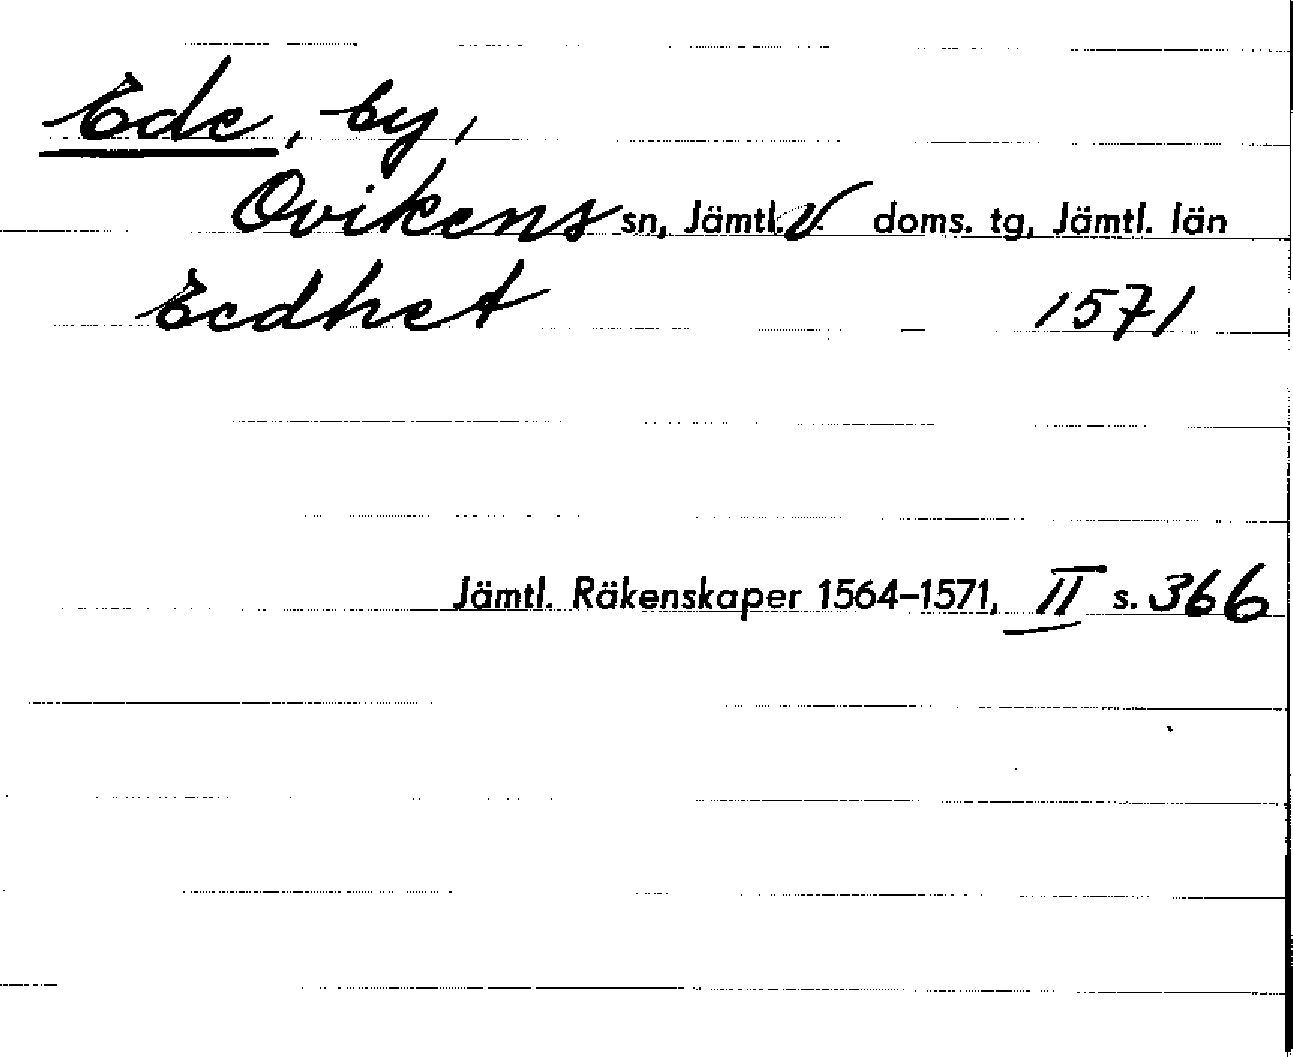 Ede, by,
Ovikens sn, Jämtl. V doms. tg, Jämtl. län
Eedhet 1571
Jämtl. Räkenskaper 1564–1571, II s. 366